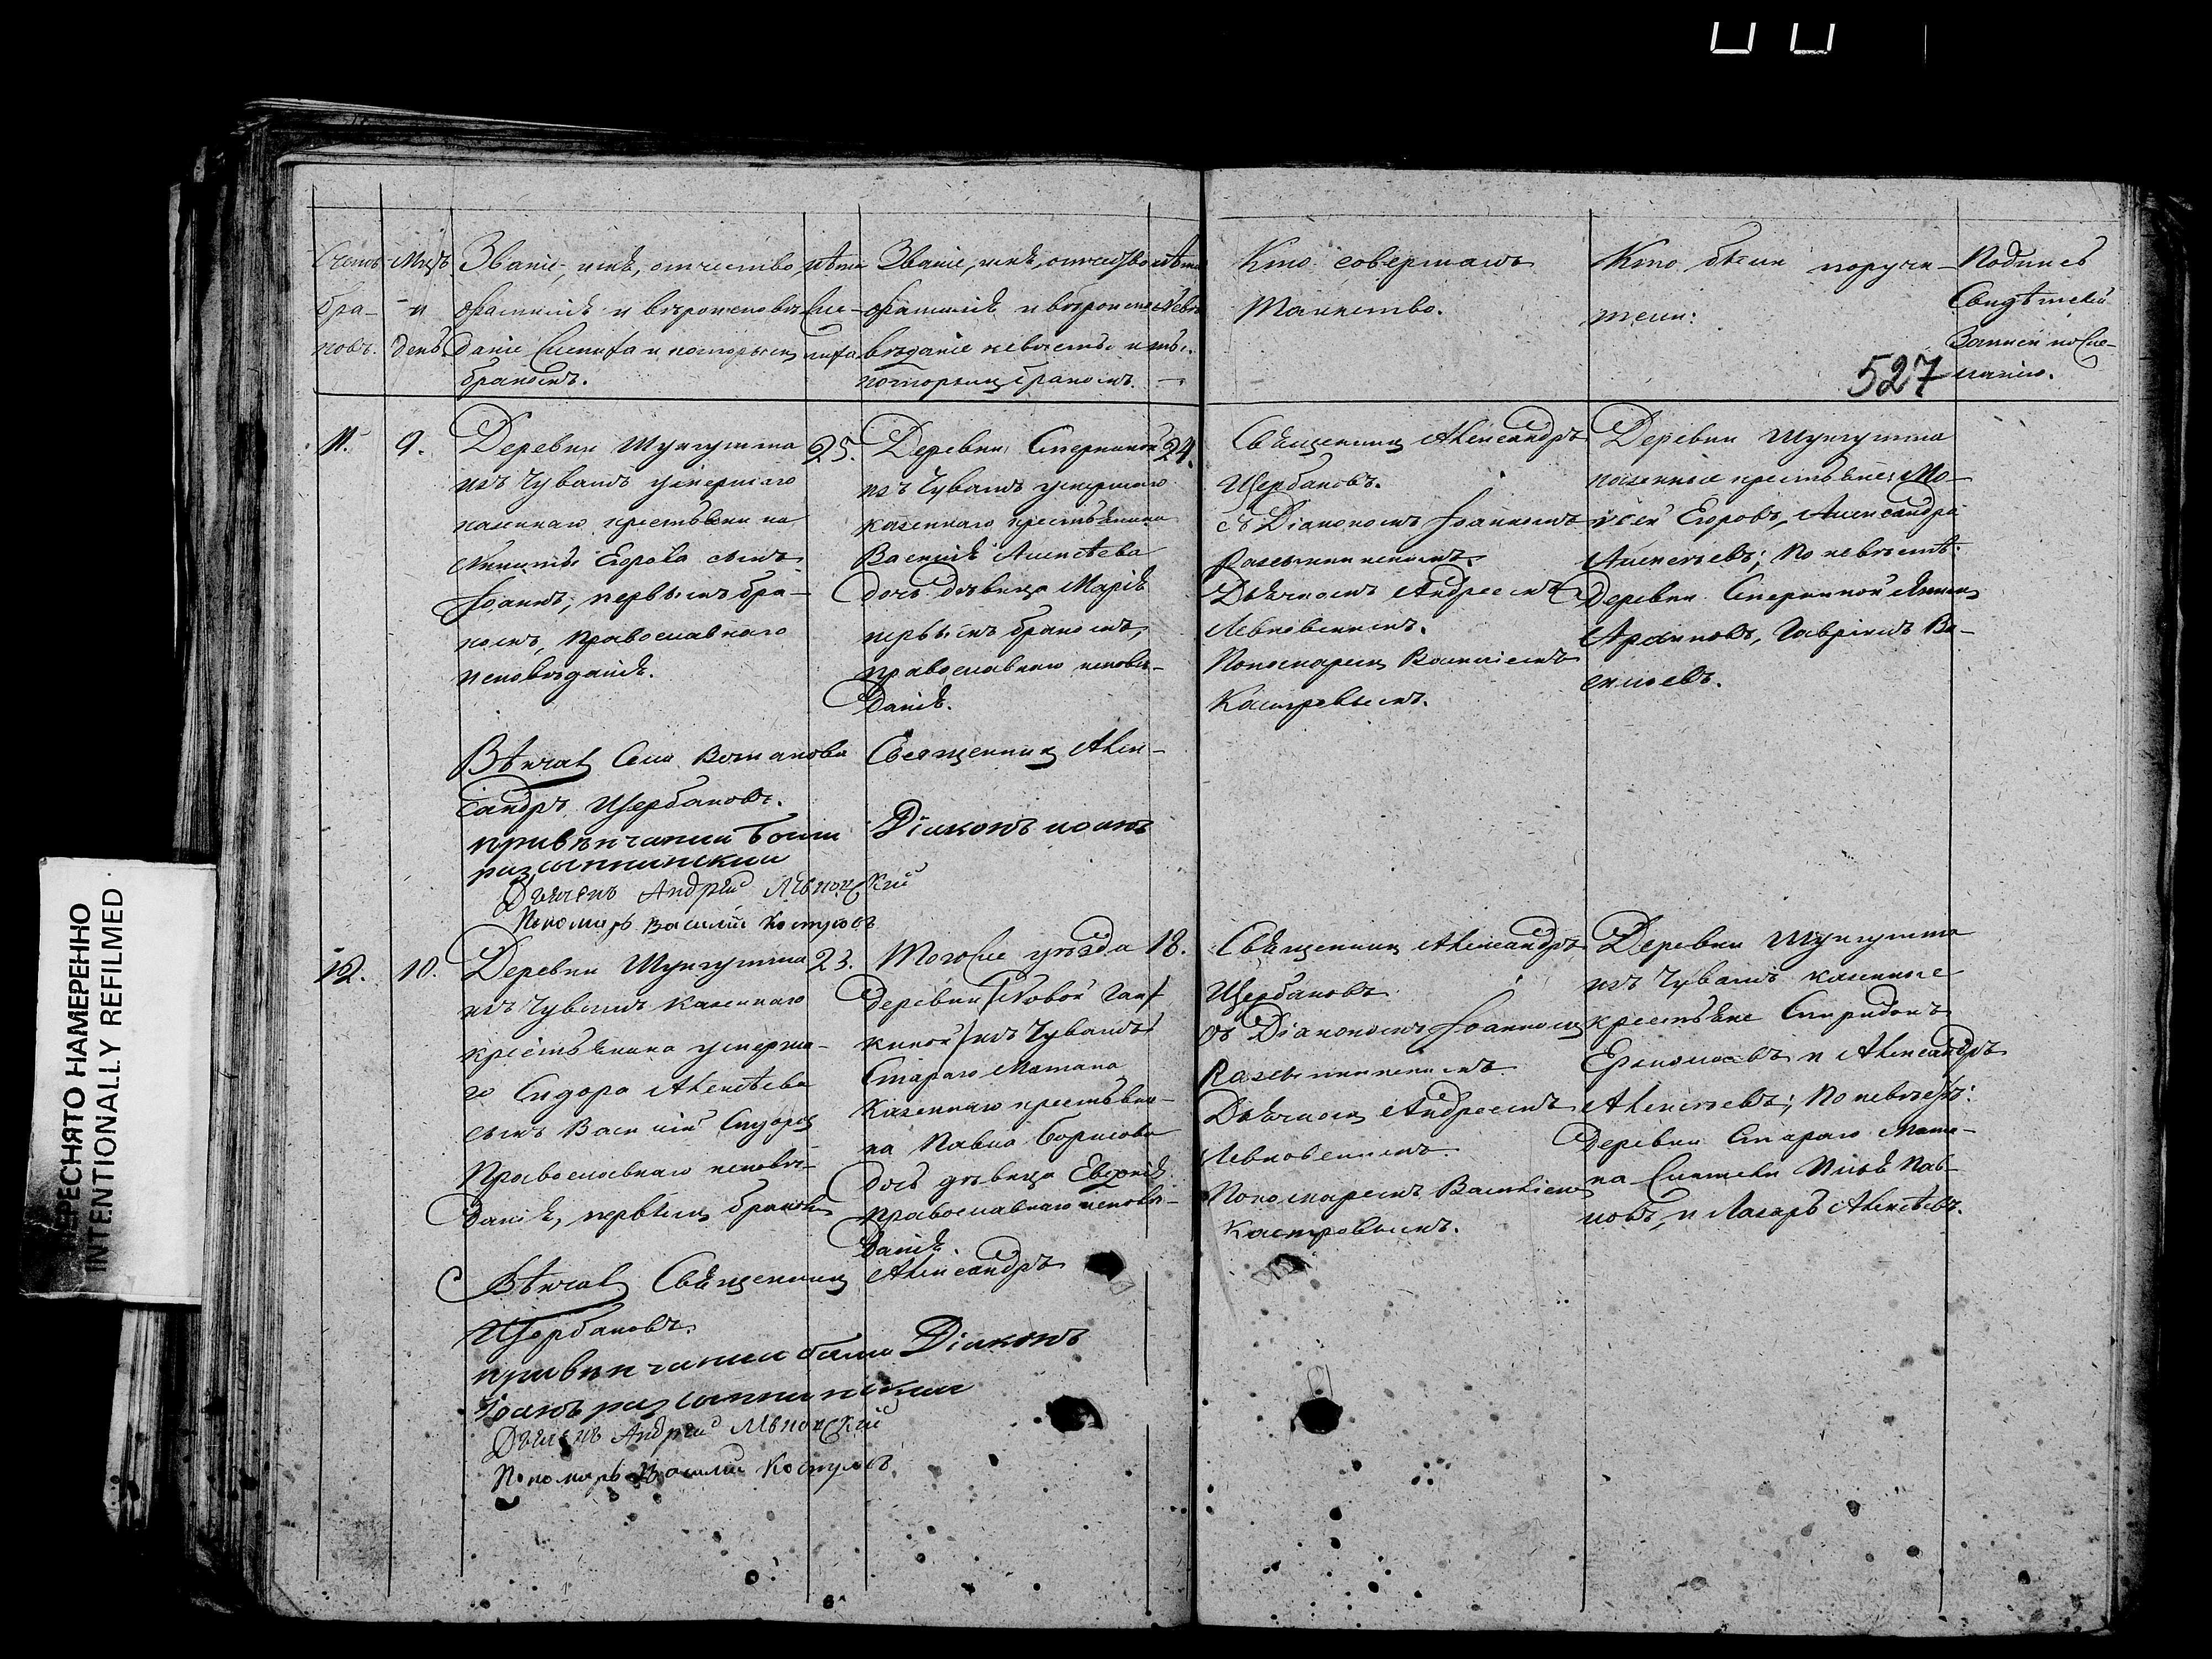 Счетъ бра-новъ.
Мцъ и день.
Званіе, имя, отчество,
фамилія и вѣроисповѣ-
даніе жениха и которымъ
бракомъ.
лѣта
же-
ниха
Званіе, имя, отчество
фамилія и вѣроиспо-
вѣданіе невѣсты и
которымъ бракомъ.
лѣта
невѣ-
сты.
Кто совершалъ
таинство.
Кто были поручи-
тели:
Подпись
свидѣтелей
записи по же-
ланію.
527
11.
9.
Деревни Шунгутша
изъ Чувашъ умершаго
казеннаго крестьяни на
Никиты Егорова сынъ
Іоаннъ, первымъ бра-
комъ, православнаго
исповѣданія.
25.
Деревни
изъ Чувашъ умершаго
казеннаго крестьянина
Василія Алексѣева
дочь дѣвица Марія
первымъ бракомъ,
православнаго исповѣ-
данія.
24.
Священникъ Александръ
Щербаковъ.
съ Діакономъ Іоанномъ
Разсыпинскимъ.
Дьячкомъ Андреемъ
Левковскимъ.
Пономаремъ Василіемъ
Костровымъ.
Деревни Шунгутша
казенные крестьяне: Мо-
ѵсей Егоровъ, Александръ
Алексѣевъ; по невѣстѣ:
Деревни
Гавріилъ Ва-
сильевъ.
Вѣнчалъ Села Священникъ Алек-
сандръ Щербаковъ.
при вѣнчании были Діаконъ иоанъ
разсыпинский
Дьячекъ Андрей Левковский
Пономарь Василий Костровъ
12.
10.
Деревни Шунгутша
изъ Чувашъ казеннаго
крестьянина умерша-
го Сидора Алексѣева
сынъ Василій Сидоровъ
Православнаго исповѣ-
данія, первымъ бракомъ
23.
Тогоже уѣзда
деревни (Новой
) изъ Чувашъ
Стараго Матака
казеннаго крестьяни-
на Павла Борисова
дочь дѣвица Евдокія
православнаго исповѣ-
данія.
18.
Священникъ Александръ
Щербаковъ
съ Діакономъ Іоанномъ
Разсыпинскимъ
Дьячкомъ Андреемъ
Левковскимъ.
Пономаремъ Василіемъ
Костровымъ.
Деревни Шунгутша
изъ Чувашъ казенные
крестьяне Спиридонъ
Ермолаевъ и Александръ
Алексѣевъ; по невѣстѣ:
Деревни Стараго Мата-
ка Илья Пав-
ловъ, и Лазарь Алексѣевъ.
Вѣнчалъ Священникъ Александръ
Щербаковъ.
при вѣнчании были Діаконъ
Іоанъ разсыпинский
Дьячекъ Андрей Левковский
Пономарь Василий Костровъ
ПЕРЕСНЯТО НАМЕРЕННО
INTENTIONALLY REFILMED